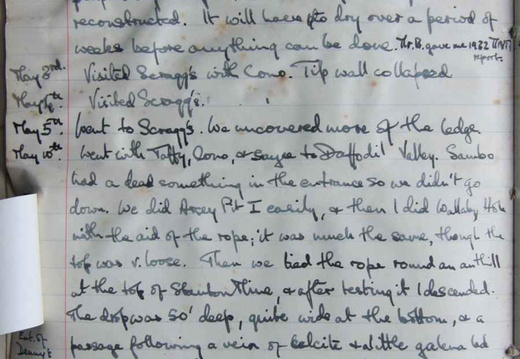 reconstructed. It will have to dry over a period of
weeks before anything can be done. Mr. B. gave me 1932
reports
May 3rd. Visited Scragg's with Cono. Tip wall collapsed
May 4th. Visited Scragg's.
May 5th. Went to Scragg's. We uncovered more of the ledge.
May 10th. Went with Taffy, Cono, & to Daffodil Valley. Sambo
had a dead something in the entrance so we didn't go
down. We did Pit I easily, & then I did Wallaby Hole
with the aid of the rope; it was much the same, though the
top was v. loose. Then we tied the rope round an anthill
at the top of Mine, & after testing it I descended.
The drop was 50' deep, quite wide at the bottom, & a
passage following a vein of calcite & a little galena led